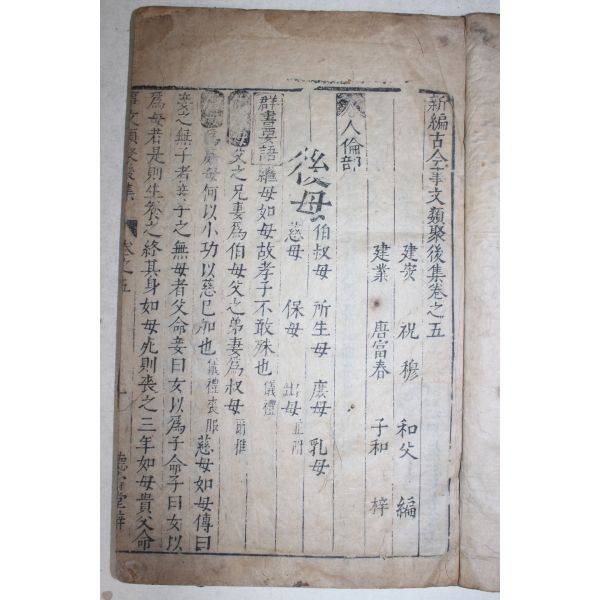 新編古今事文類聚後集卷之五
建安 祝 穆 和父 編
建業 唐富春 子和 梓
人倫部
後母
伯叔母 所生母 庶母 乳母
慈母 保母 出母
群書要語 繼母如母故孝子不敢殊也 儀禮
父之兄妻爲伯母父之弟妻爲叔母 爾雅
庶母何以小功以慈已加也 儀禮喪服 慈母如母傳曰
妾之無子者妾子之無母者父命妾曰女以爲子命子曰女以
爲母若是則生養之終其身如母死則喪之三年如母貴父命
事文類聚後集 卷之五 德壽堂梓